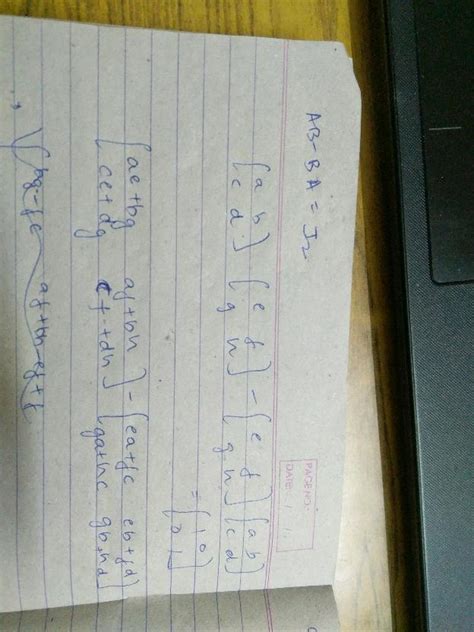 PAGE NO:
DATE: / /
AB - BA = I₂
[a b c d] [e f g h] - [e f g h] [a b c d]
= [1 0 0 1]
[ae+bg af+bh ce+dg cf+dh] - [ea+fc eb+fd ga+hc gb+hd]